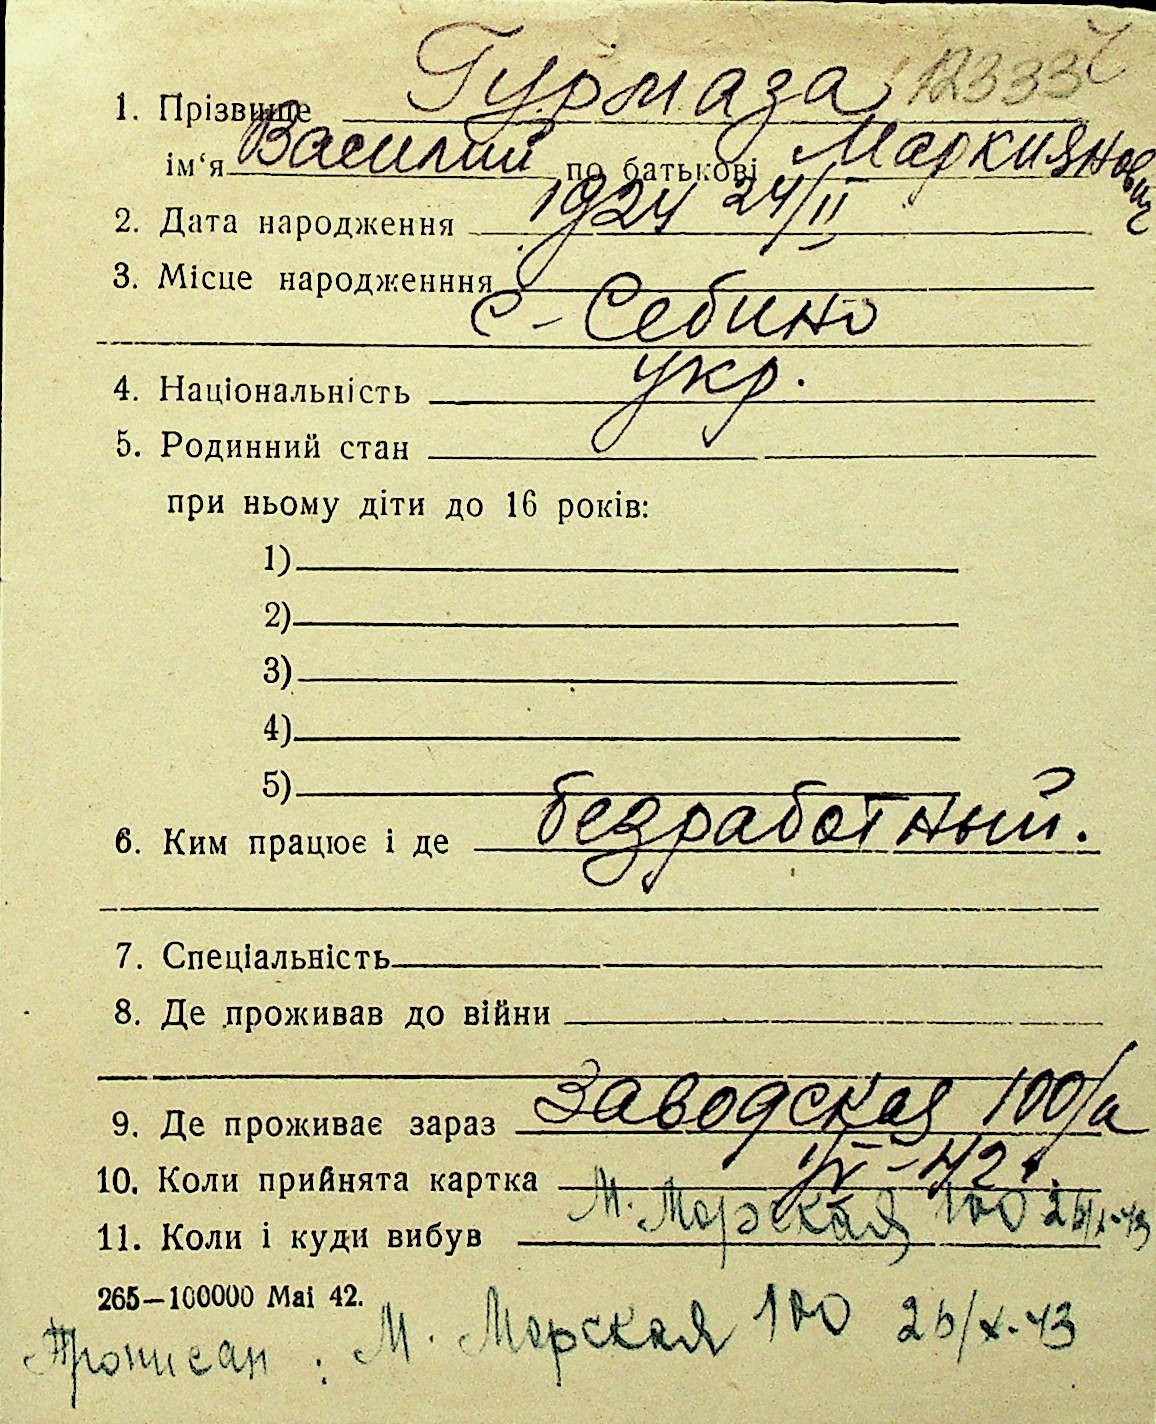 1. Прізвище Гурмаза 12333
ім‘я Василий по батькові Маркиянович
2. Дата народження 1924 24/II
3. Місце народженння
с - Себино
4. Національність укр.
5. Родинний стан
при ньому діти до 16 років:
1)
2)
3)
4)
5)
6. Ким працює і де безработный.
7. Спеціальність
8. Де проживав до війни
9. Де проживає зараз Заводская 100/а
10. Коли прийнята картка -42
11. Коли і куди вибув М. Морская 100 26/X-43
265—100000 Mai 42.
Прописан: М. Морская 100 26/X-43